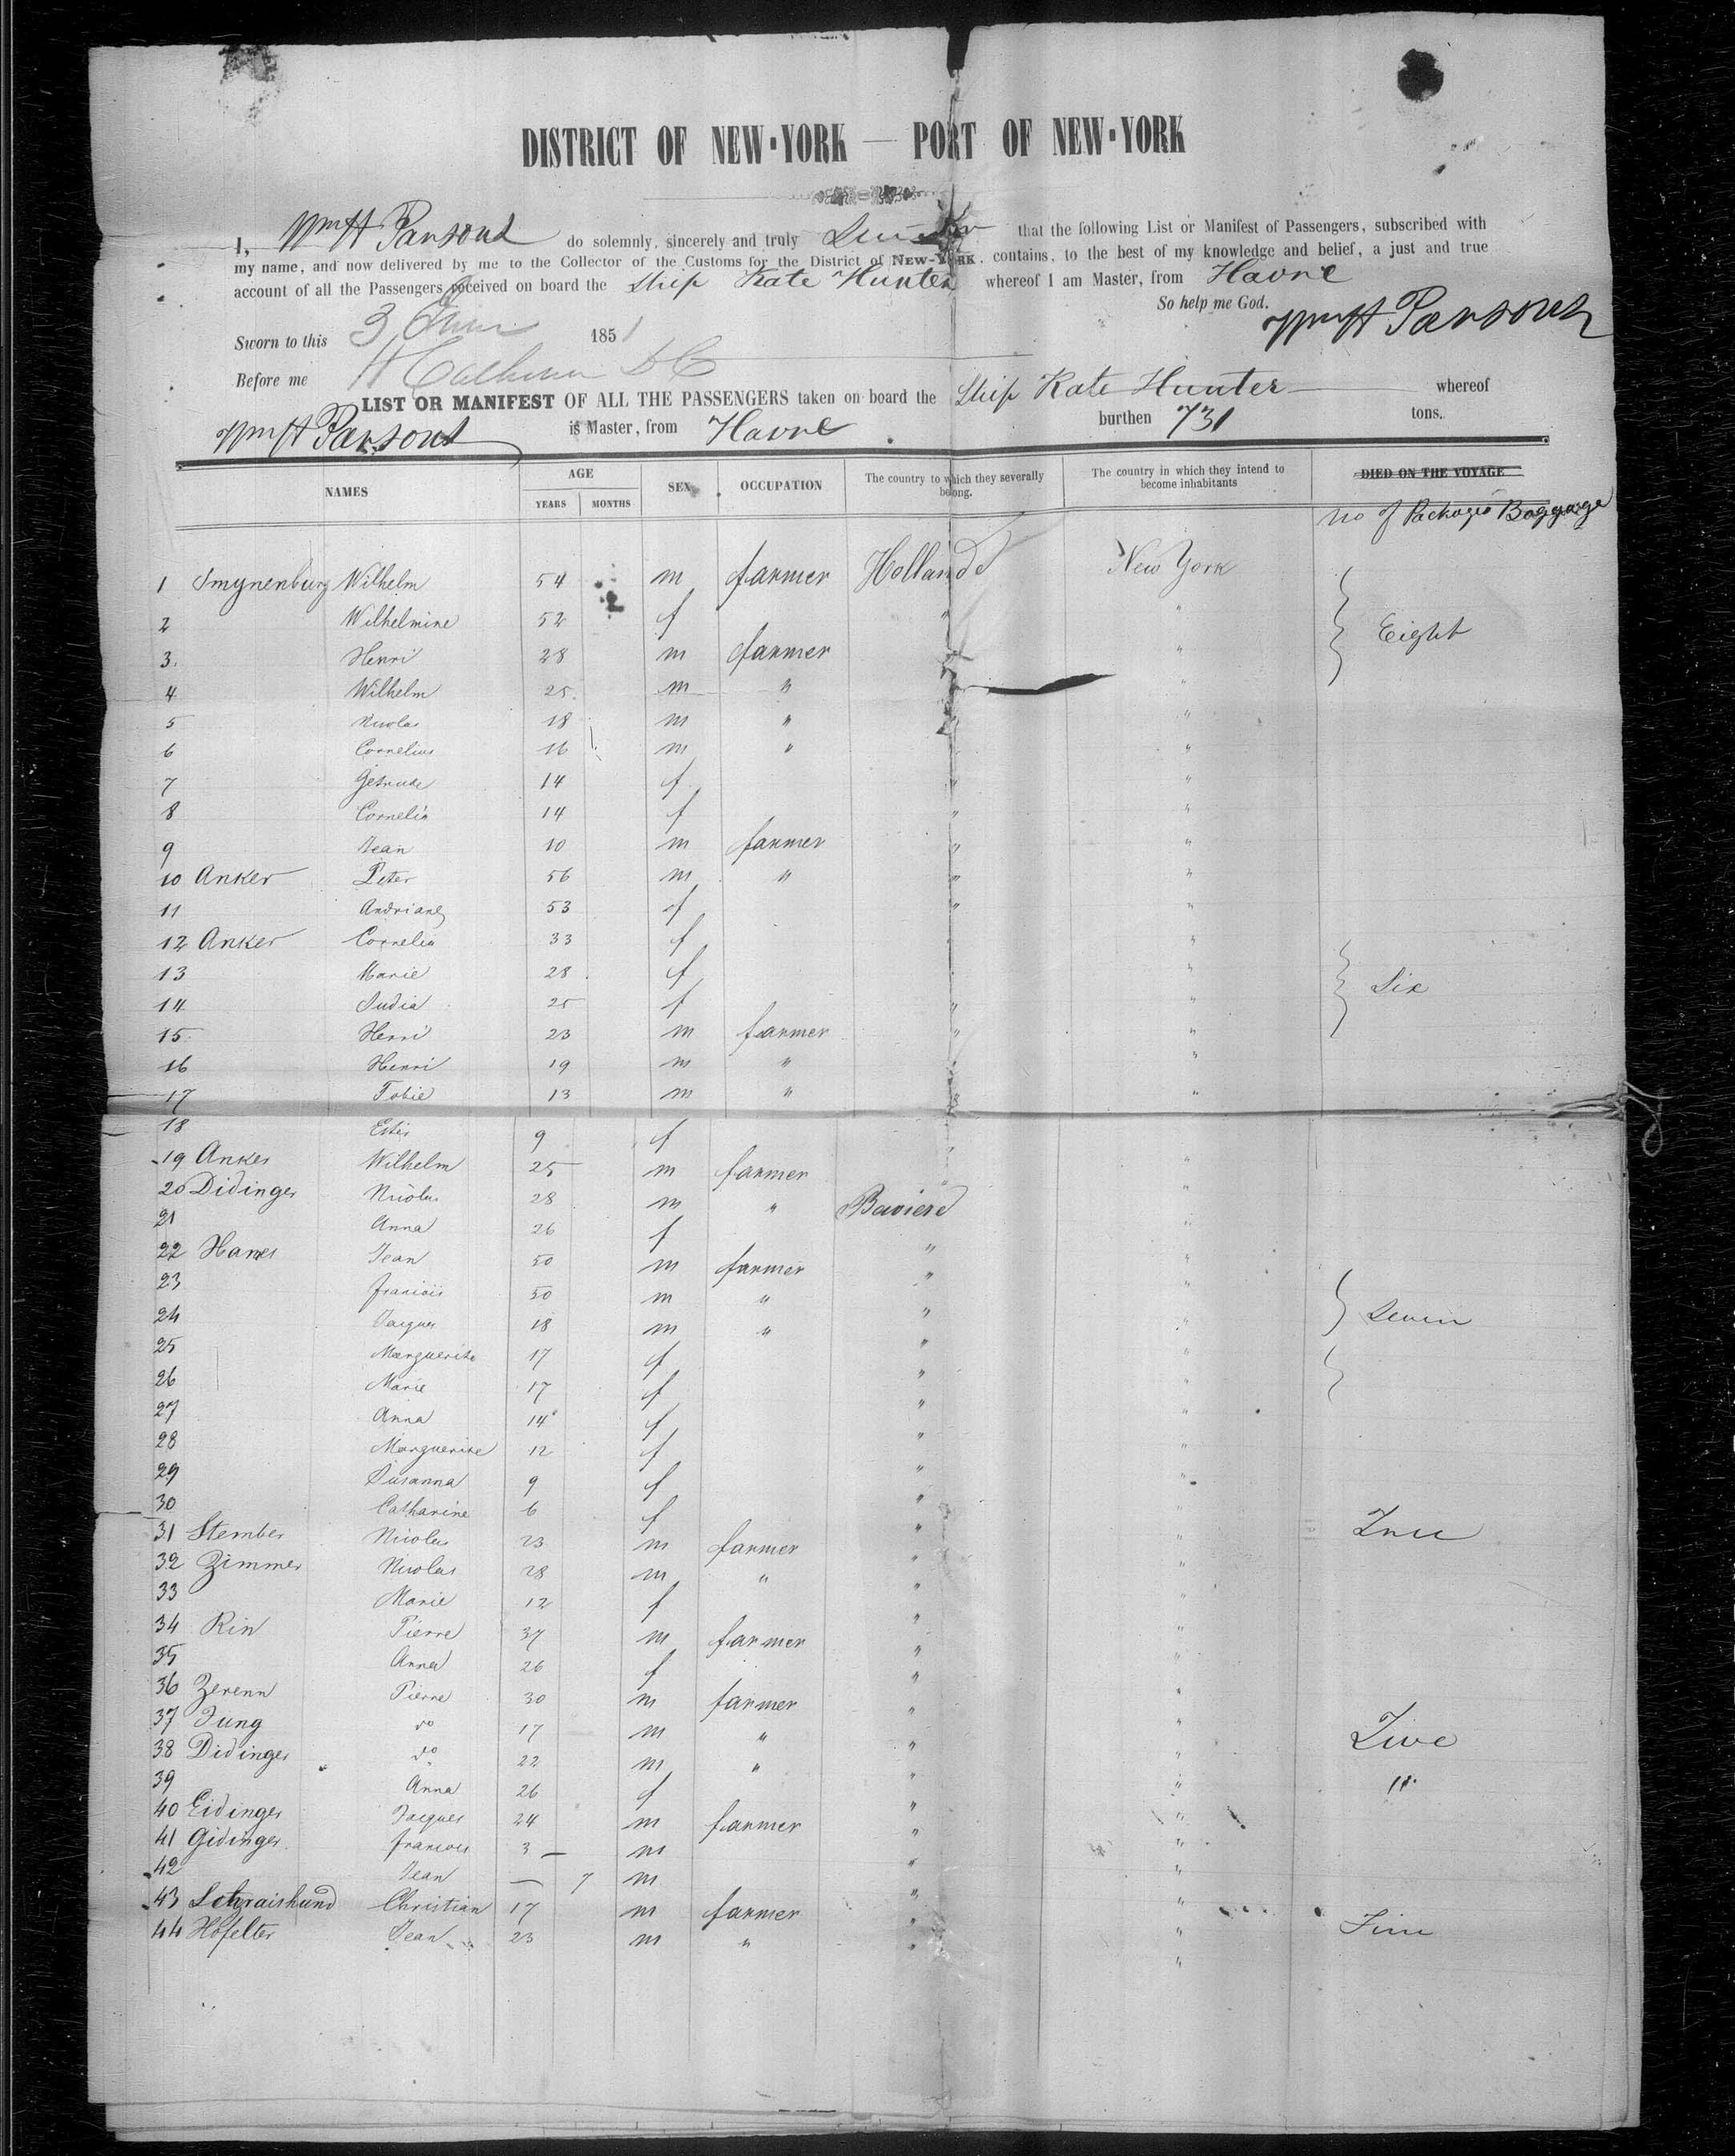 DISTRICT OF NEW-YORK — PORT OF NEW-YORK
I, Wm H Parsons do solemnly, sincerely and truly that the following List or Manifest of Passengers, subscribed with
my name, and now delivered by me to the Collector of the Customs for the District of NEW-YORK, contains, to the best of my knowledge and belief, a just and true
account of all the Passengers received on board the Ship Kate Hunter whereof I am Master, from Havre
So help me God.
Sworn to this 3 1851 Wm H Parsons
Before me H Calhoun D C
LIST OR MANIFEST OF ALL THE PASSENGERS taken on board the Ship Kate Hunter whereof
Wm H Parsons is Master, from Havre burthen 731 tons.
NAMES AGE YEARS MONTHS SEX OCCUPATION The country to which they severally belong. The country in which they intend to become inhabitants DIED ON THE VOYAGE
No of Packages Baggage
1 Smynenburg Wilhelm 54 m farmer Holland New York
2 Wilhelmine 52 f " " Eight
3. Henri 28 m farmer "
4 Wilhelm 25 m " "
5 Nicolas 18 m " " "
6 Cornelius 16 m " "
7 Getrude 14 f " "
8 Cornelia 14 f " "
9 Jean 10 m farmer " "
10 Anker Peter 56 m " " "
11 Andriane 53 f " "
12 Anker Cornelia 33 f "
13 Marie 28 f " Six
14 Judia 25 f " "
15 Henri 23 m farmer " "
16 Henri 19 m " "
17 Tobie 13 m " "
18 9 f "
19 Anker Wilhelm 25 m farmer " "
20 Didinger Nicolas 28 m " Baviere "
21 Anna 26 f " "
22 Hames Jean 50 m farmer " "
23 francois 50 m " " "
24 Jacques 18 m " " " Seven
25 Marguerite 17 f " "
26 Marie 17 f " "
27 Anna 14 f " "
28 Marguerite 12 f " "
29 Susanna 9 f " "
30 Catharine 6 f " "
31 Stember Nicolas 23 m farmer " "
32 Zimmer Nicolas 28 m " " "
33 Marie 12 f " "
34 Rin Pierre 37 m farmer " "
35 Anna 26 f " "
36 Zerenn Pierre 30 m farmer " "
37 Jung do 17 m " " "
38 Didinger do 22 m " " "
39 Anna 26 f " " "
40 Eidinger Jacques 24 m farmer " "
41 Gidinger francois 3 — m " "
42 Jean — 7 m " "
43 Christian 17 m farmer " "
44 Hofelter Jean 23 m " " "